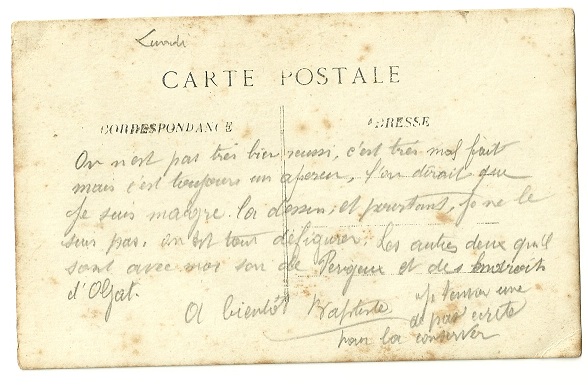 Lundi
CARTE POSTALE
CORRESPONDANCE
ADRESSE
On n'est pas très bien reussi, c'est très mal fait
mais c'est toujours un aperçu, l'on dirait que
je suis maigre la dessin; et pourtant, je ne le
suis pas, on est tout défigurer. Les autres deux qu'il
sont avec moi son de Perigeux et des
d'Objat.
A bientôt Baptiste
je t'envoi une
de pas ecrite
pour la conserver